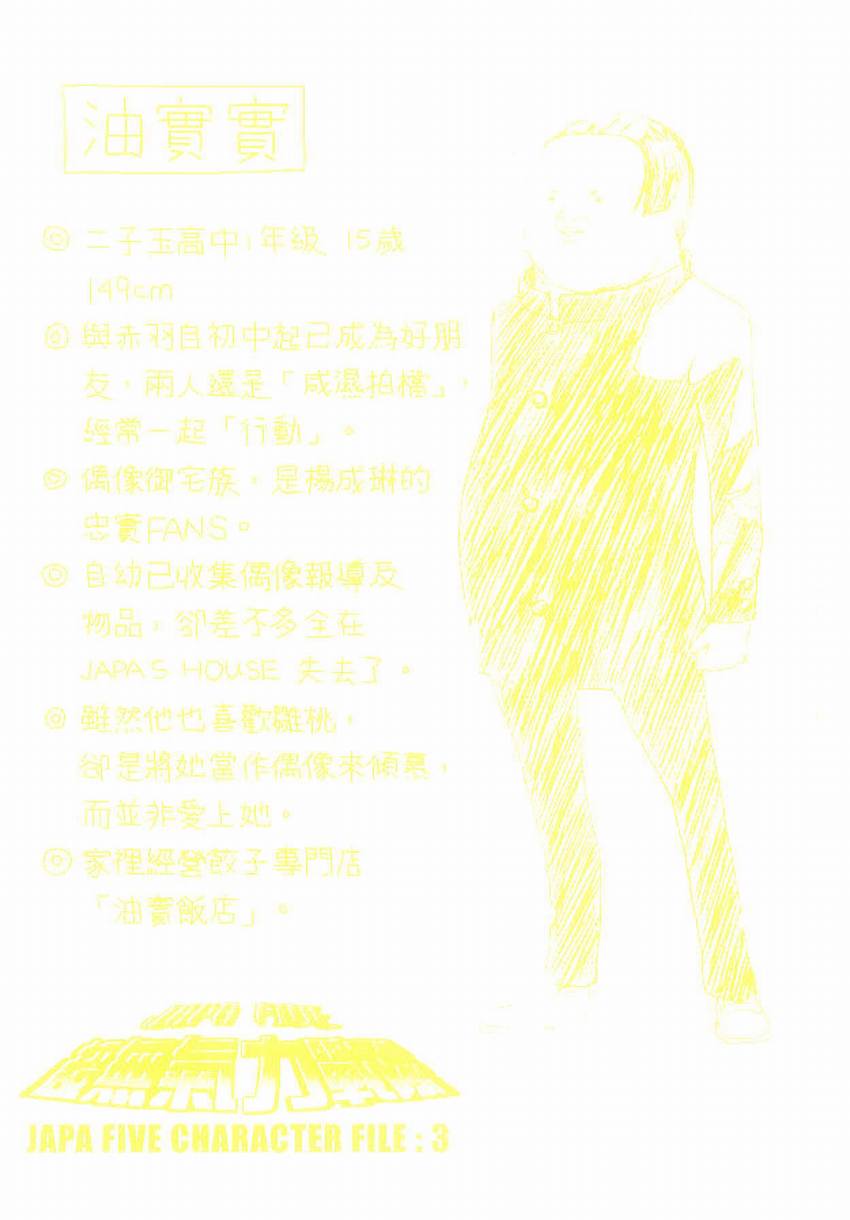 油實實
◎ 二子玉高中1年級、15歲
149cm
◎ 與赤羽自初中起已成為好朋
友，兩人還是「咸濕拍檔」，
經常一起「行動」。
◎ 偶像御宅族，是楊成琳的
忠實FANS。
◎ 自幼已收集偶像報導及
物品，卻差不多全在
JAPA'S HOUSE 失去了。
◎ 雖然他也喜歡雛桃，
卻是將她當作偶像來傾慕，
而並非愛上她。
◎ 家裡經營餃子專門店
「油實飯店」。
JAPA FIVE
無氣力戰隊
JAPA FIVE CHARACTER FILE : 3